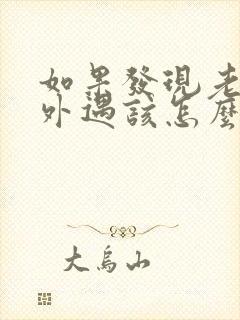 如果發現老
外遇該怎麼
大烏山